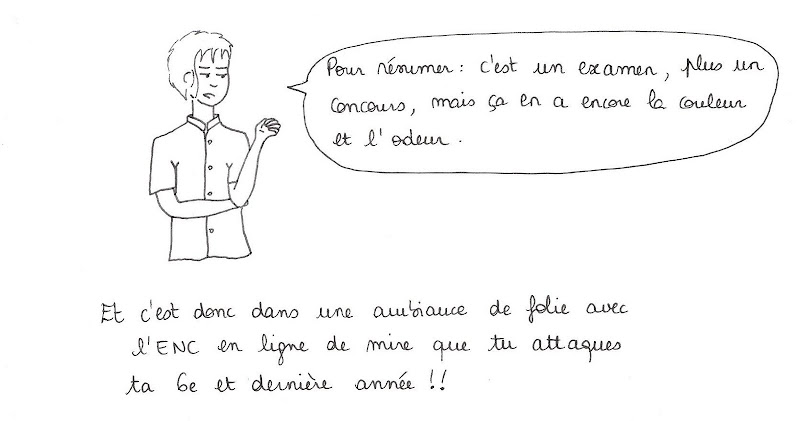 Pour résumer : c'est un examen, plus un
concours, mais ça en a encore la couleur
et l'odeur.
Et c'est donc dans une ambiance de folie avec
l'ENC en ligne de mire que tu attaques
ta 6e et dernière année !!